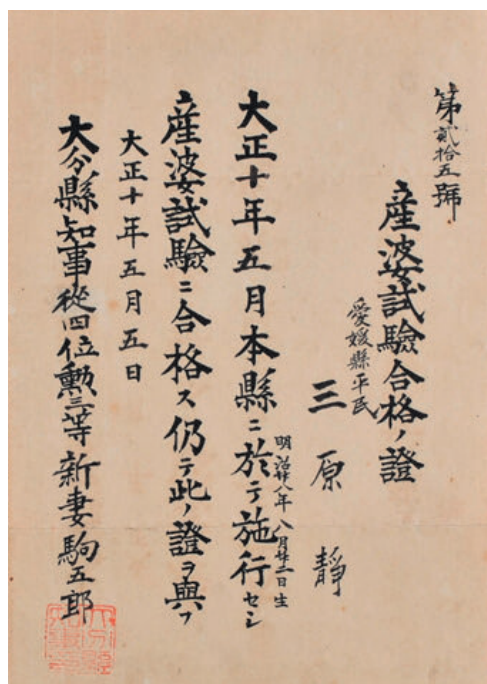 第貳拾五號
産婆試驗合格ノ證
愛媛縣平民
三原靜
明治廿八年八月廿二日生
大正十年五月本縣ニ於テ施行セシ
産婆試驗ニ合格ス仍テ此ノ證ヲ與フ
大正十年五月五日
大分縣知事從四位勳三等新妻駒五郎